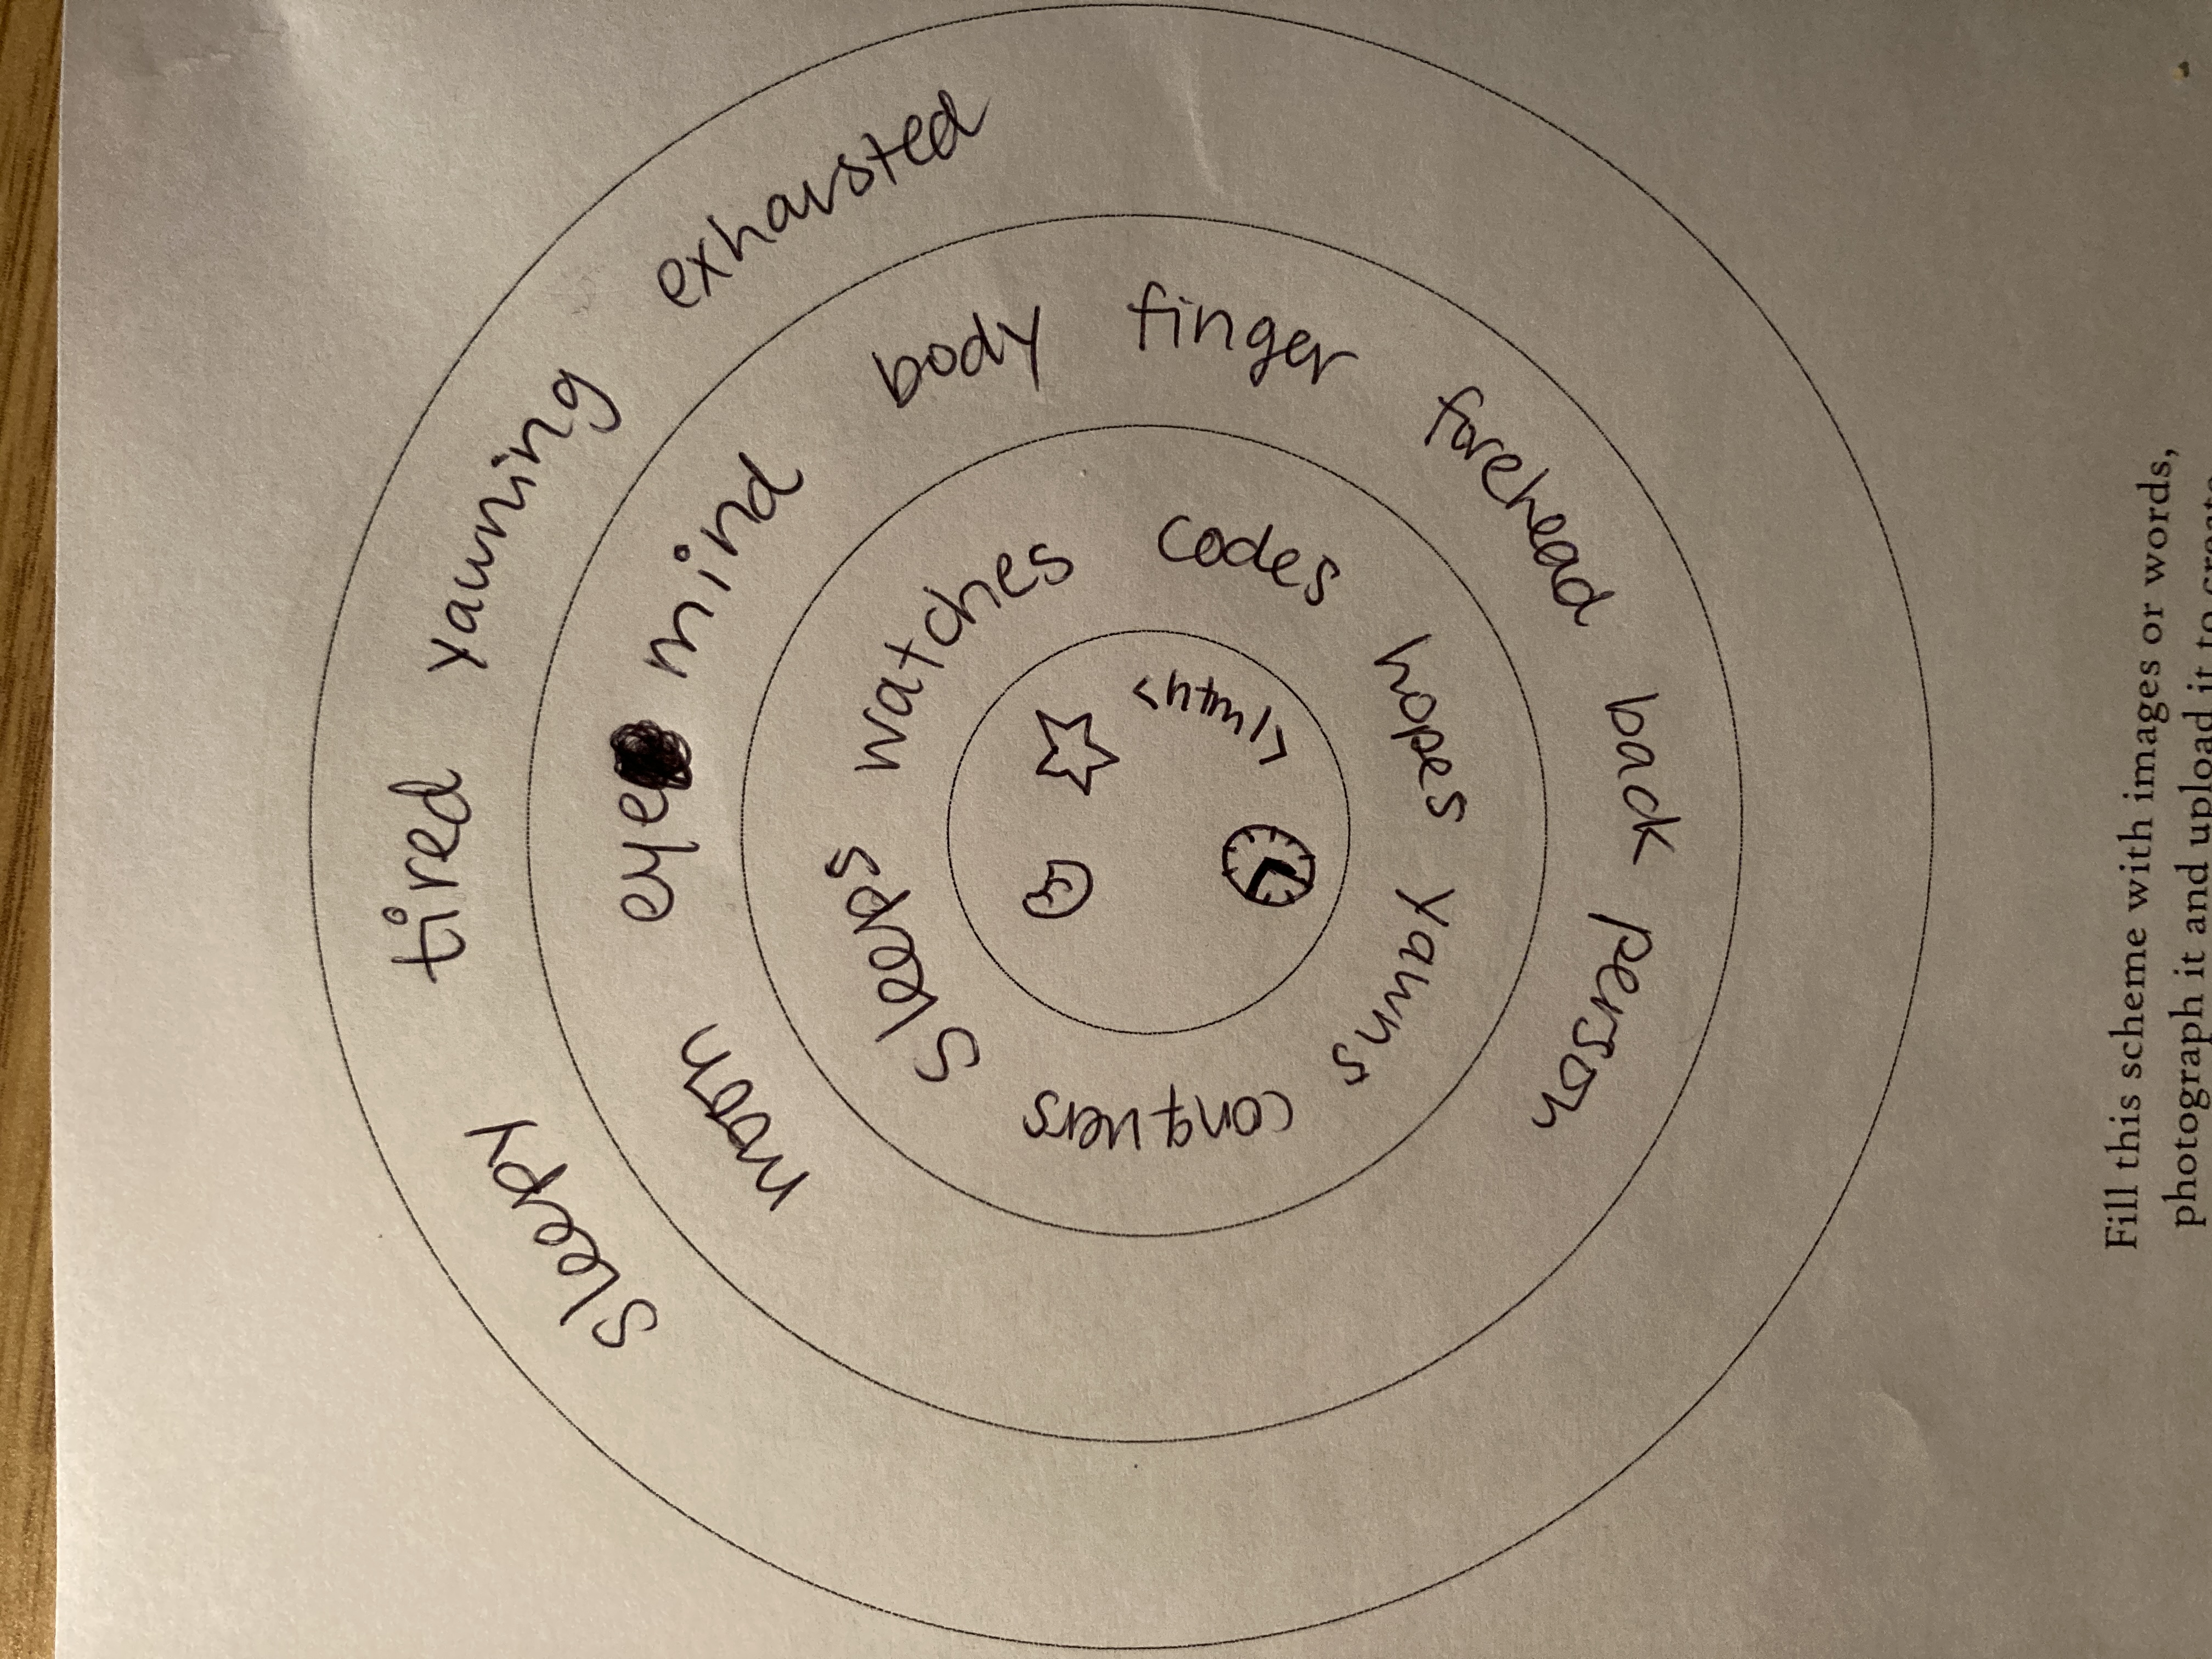 sleepy tired yawning exhausted
moon eye mind body finger forehead back person
sleeps watches codes hopes yawns conquers
<html>
Fill this scheme with images or words,
photograph it and upload it to create